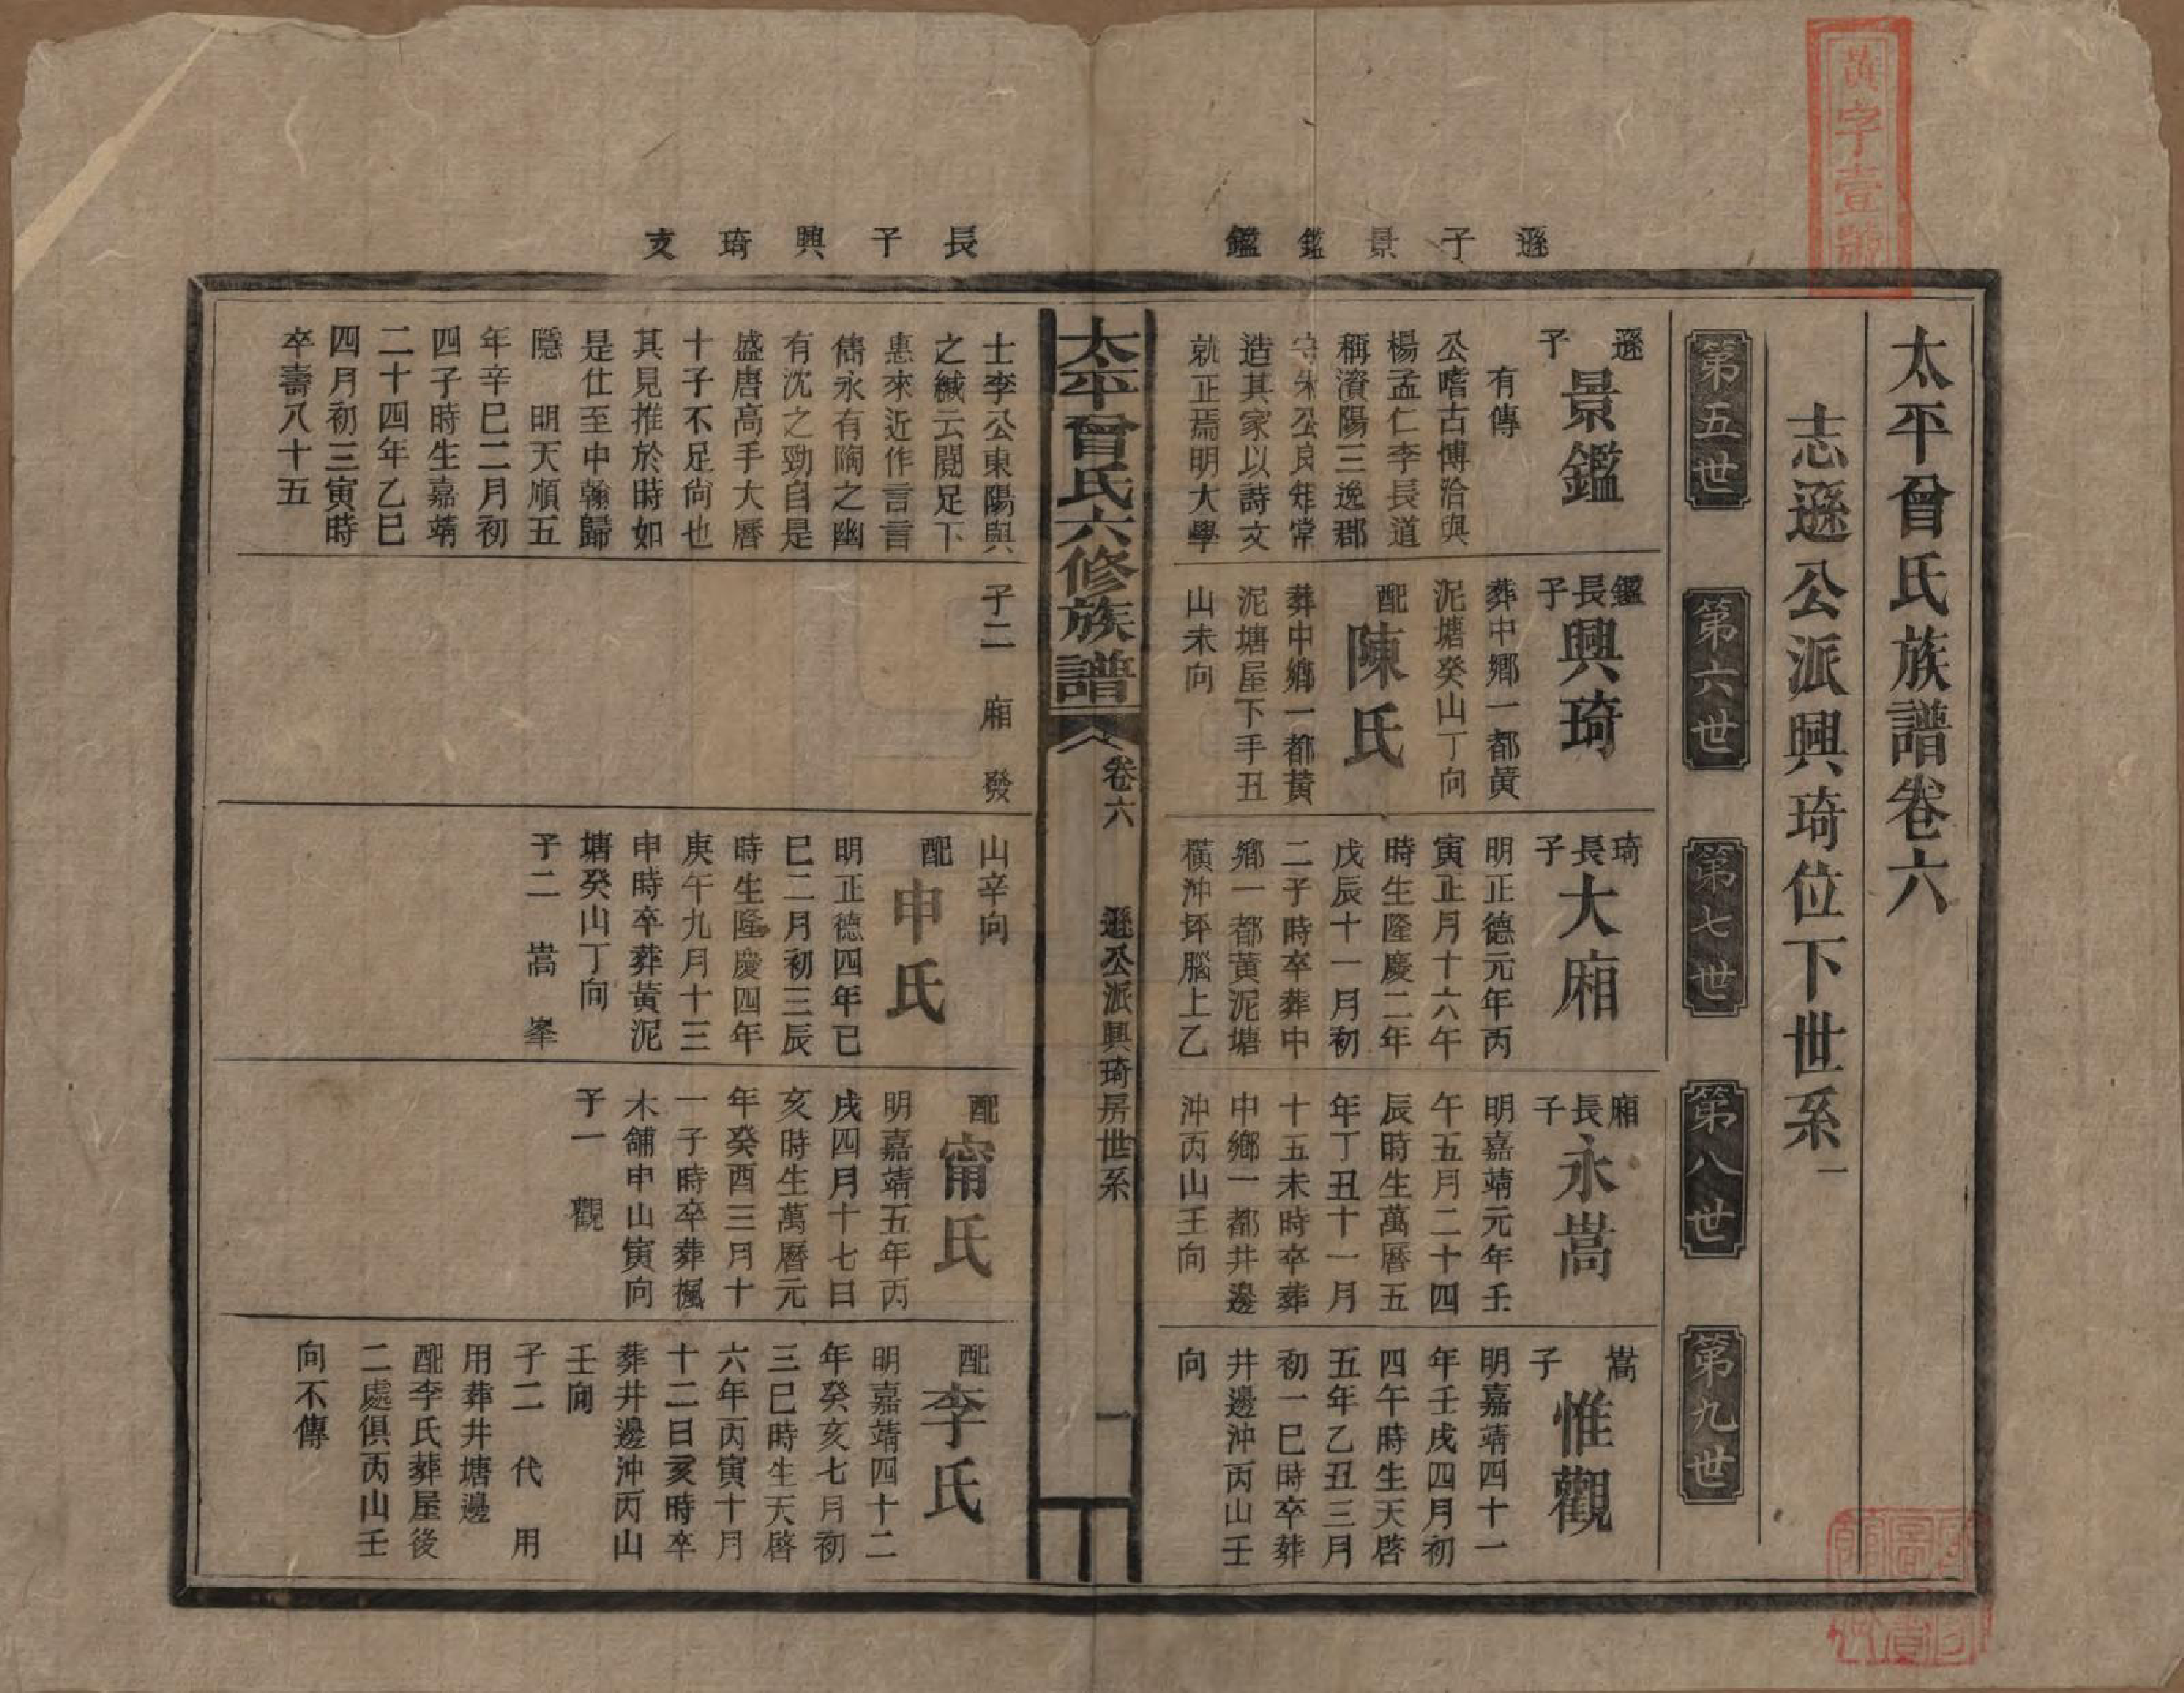 黃字壹號
遜子景鑑鑑
長子興琦支
太平曾氏族譜卷六
志遜公派興琦位下世系一
第五世
第六世
第七世
第八世
第九世
遜子
景鑑
有傳
公嗜古博洽與
楊孟仁李長道
稱濱陽三逸郡
守朱公良矩常
造其家以詩文
就正焉明大學
鑑長子
興琦
葬中鄉一都黃
泥塘癸山丁向
配
陳氏
葬中鄉一都黃
泥塘屋下手丑
山未向
琦長子
大廂
明正德元年丙
寅正月十六午
時生隆慶二年
戊辰十一月初
二子時卒葬中
鄉一都黃泥塘
橫沖坪腦上乙
廂長子
永嵩
明嘉靖元年壬
午五月二十四
辰時生萬曆五
年丁丑十一月
十五未時卒葬
中鄉一都井邊
沖丙山壬向
嵩子
惟觀
明嘉靖四十一
年壬戌四月初
四午時生天啓
五年乙丑三月
初一巳時卒葬
井邊沖丙山壬
向
太平曾氏六修族譜
卷六
遜公派興琦房世系
一
士李公東陽與
之緘云閱足下
惠來近作言言
儁永有陶之幽
有沈之勁自是
盛唐高手大曆
十子不足尙也
其見推於時如
是仕至中翰歸
隱 明天順五
年辛巳二月初
四子時生嘉靖
二十四年乙巳
四月初三寅時
卒壽八十五
子二 廂 發
山辛向
配
申氏
明正德四年已
巳二月初三辰
時生隆慶四年
庚午九月十三
申時卒葬黃泥
塘癸山丁向
子二 嵩 峯
配
甯氏
明嘉靖五年丙
戌四月十七日
亥時生萬曆元
年癸酉三月十
一子時卒葬楓
木舖申山寅向
子一 觀
配
李氏
明嘉靖四十二
年癸亥七月初
三巳時生天啓
六年丙寅十月
十二日亥時卒
葬井邊沖丙山
壬向
子二 代 用
用葬井塘邊
配李氏葬屋後
二處俱丙山壬
向不傳